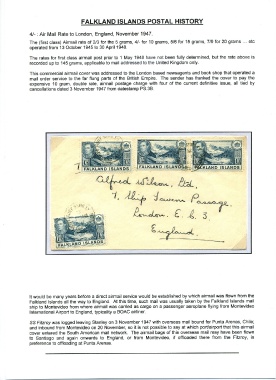 FALKLAND ISLANDS POSTAL HISTORY
4/- : Air Mail Rate to London, England, November 1947.
The (first class) Airmail rate of 2/3 for the 5 grams, 4/- for 10 grams, 5/9 for 15 grams, 7/6 for 20 grams ... etc
operated from 13 October 1945 to 30 April 1948.
The rates for first class airmail post prior to 1 May 1948 have not been fully determined, but the rate above is
recorded up to 145 grams, applicable to mail addressed to the United Kingdom only.
This commercial airmail cover was addressed to the London based newsagents and back shop that operated a
mail order service to the far flung parts of the British Empire. The sender has franked the cover to pay the
expensive 10 gram, double rate, airmail postage with four of the current definitive issue, all tied by
cancellations dated 3 November 1947 from datestamp PS.3B
FALKLAND ISLANDS
FALKLAND ISLANDS
FALKLAND ISLANDS
Alfred Wilson, Ltd,
7, Ship Tavern Passage,
London. E. C. 3.
England
FALKLAND ISLANDS
It would be many years before a direct airmail service would be established by which airmail was flown from the
Falkland Islands all the way to England. At this time, such mail was usually taken by the Falkland Islands mail
ship to Montevideo from where airmail was carried as cargo on a passenger aeroplane flying from Montevideo
International Airport to England, typically a BOAC airliner.
SS Fitzroy was logged leaving Stanley on 3 November 1947 with overseas mail bound for Punta Arenas, Chile;
and inbound from Montevideo on 20 November, so it is not possible to say at which port/airport that this airmail cover
entered the South American mail network. The airmail bags of this overseas mail may have been flown
to Santiago and again onwards to England, or from Montevideo, if offloaded there from the Fitzroy, in
preference to offloading at Punta Arenas.